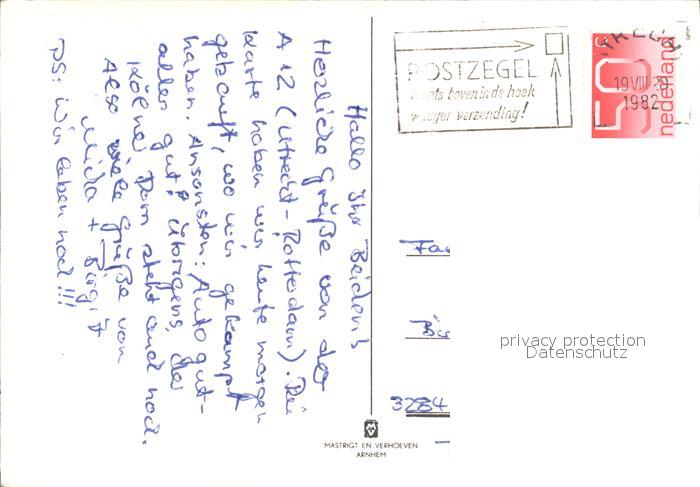 Hallo Ihr Beiden!
Herzliche Grüße von der
A 12 (Utrecht - Rotterdam). Die
Karte haben wir heute morgen
gekauft, wo wir gekampt
haben. Ansonsten: Auto gut -
alles gut! Übrigens, der
Kölner Dom steht auch noch.
Also viele Grüße von
+ Birgit
PS: Wir leben noch!!!
POSTZEGEL
rechts boven in de hoek
vlugger verzending!
19 VIII
1982
50 c
nederland
Fa
Bi
3284
privacy protection
Datenschutz
MASTRIGT EN VERHOEVEN
ARNHEM